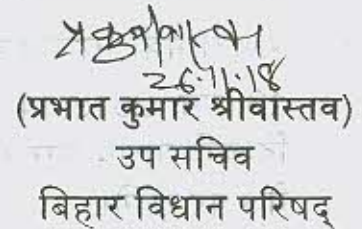 26.11.18
(प्रभात कुमार श्रीवास्तव)
उप सचिव
बिहार विधान परिषद्